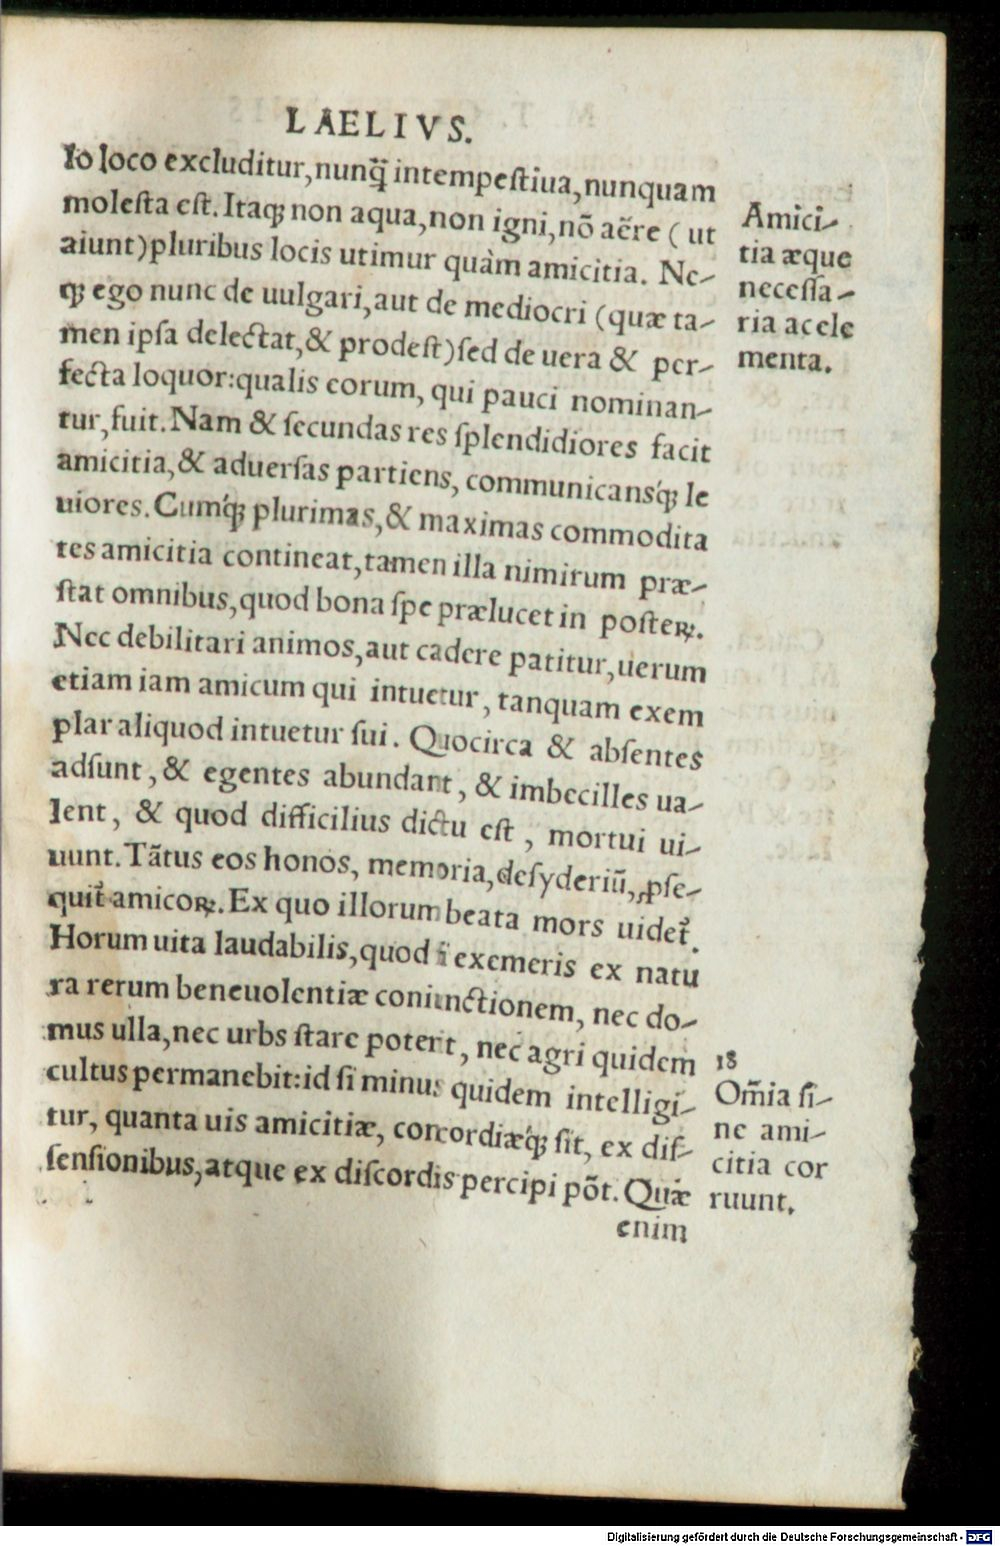 LAELIVS.
lo loco excluditur, nunq̃ intempeſtiua, nunquam
moleſta eſt. Itaq; non aqua, non igni, nõ aëre ( ut
aiunt) pluribus locis utimur quàm amicitia. Ne-
q; ego nunc de uulgari, aut de mediocri (quæ ta-
men ipſa delectat, & prodeſt) ſed de uera & per-
fecta loquor: qualis eorum, qui pauci nominan-
tur, fuit. Nam & ſecundas res ſplendidiores facit
amicitia, & aduerſas partiens, communicansq́; le
uiores. Cumq́; plurimas, & maximas commodita
tes amicitia contineat, tamen illa nimirum præ-
ſtat omnibus, quod bona ſpe prælucet in poſteꝝ.
Nec debilitari animos, aut cadere patitur, uerum
etiam iam amicum qui intuetur, tanquam exem
plar aliquod intuetur ſui. Quocirca & abſentes
adſunt, & egentes abundant, & imbecilles ua-
lent, & quod difficilius dictu eſt, mortui ui-
uunt. Tãtus eos honos, memoria, deſyderiũ, ꝓſe-
quit᷑ amicoꝝ. Ex quo illorum beata mors uidet᷑.
Horum uita laudabilis, quod ſi exemeris ex natu
ra rerum beneuolentiæ coniunctionem, nec do-
mus ulla, nec urbs ſtare poterit, nec agri quidem
cultus permanebit: id ſi minus quidem intelligi-
tur, quanta uis amicitiæ, concordiæq́; ſit, ex diſ-
ſenſionibus, atque ex diſcordis percipi põt. Quæ
enim
Amici-
tia æque
neceſſa-
ria ac ele
menta.
18
Om̃ia ſi-
ne ami-
citia cor
ruunt.
Digitalisierung gefördert durch die Deutsche Forschungsgemeinschaft - DFG